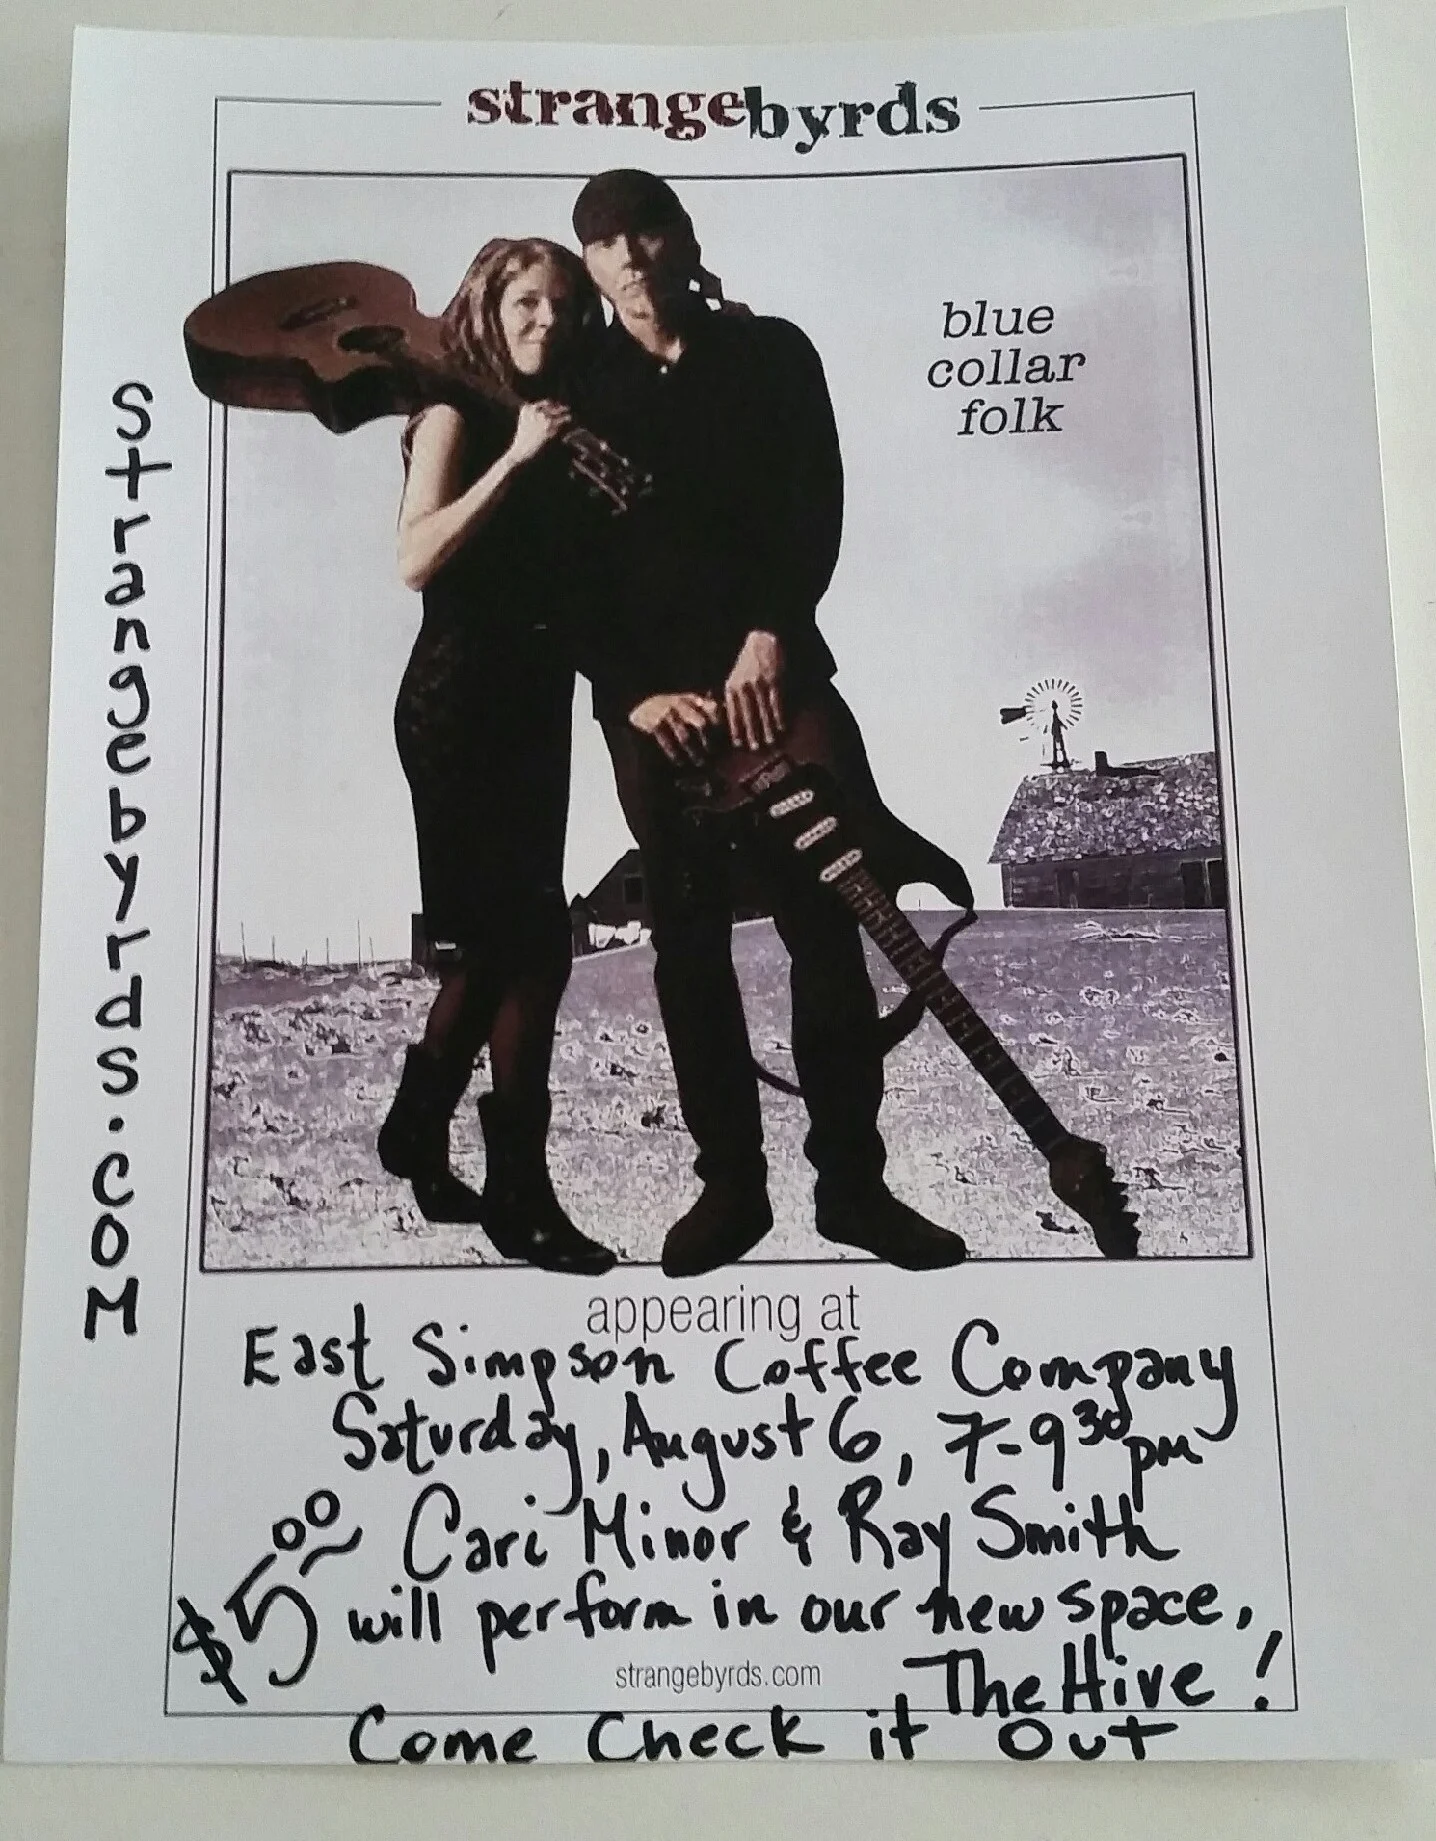 strangebyrds
blue
collar
folk
Strangebyrds.com
appearing at
East Simpson Coffee Company
Saturday, August 6, 7-9³⁰pm
$5.00
Cari Minor & Ray Smith
will perform in our new space,
The Hive!
strangebyrds.com
Come Check it Out